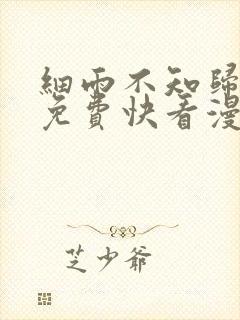 細雨不知歸
免費快看漫
芝少爺